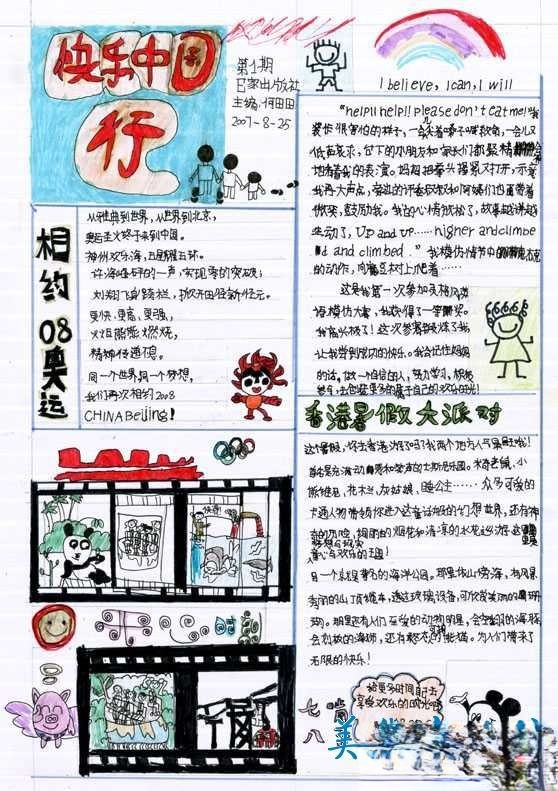 快乐中国
行
第1期
E家出版社
主编:何田田
2007-8-25
I believe, I can, I will
相约08奥运
从雅典到世界,从世界到北京,
奥运圣火终于来到中国。
神州欢乐海,五星耀五环。
许海峰砰的一声,实现零的突破;
刘翔飞身跨栏,
更快,更高,更强,
火炬熊熊燃烧,
精神传递理想。
同一个世界,同一个梦想,
我们再次相约2008
CHINA Beijing!
"help!! help!! please don't eat me!"我
装作很害怕的样子,一会尖着嗓子喊救命,一会儿又
低声哀求,台下的小朋友和家长们都聚精
地看着我的表演。妈妈把拳头握紧又打开,示意
我再大声点,旁边的评委叔叔和阿姨们也面带着
微笑,鼓励我。我的心情放松了,故事越讲越
生动了,Up and up…… higher and climbe
d and climbed." 我模仿情节中的
的动作,向高高树上爬着……
这是我第一次参加英格风英
语模仿大赛,我获得了一等奖。
我高兴极了!这次参赛锻炼了我
让我尝到成功的快乐。我会记住妈妈
的话,做一个自信的人,努力学习,积极
参与,去创造更多的属于自己的欢乐时光!
香港暑假大派对
这个暑假,你去香港沙滩了吗?我两个地方人气最旺哦!
首先是充满动感和笑声的士斯尼乐园。米奇老鼠,小
熊维尼,花木兰,灰姑娘,睡公主……众多可爱的
卡通人物带领你进入这童话般的幻想世界,还有神
奇的历险,绚丽的烟花和清凉的水花
童心与欢乐的王国!
另一个就是著名的海洋公园。那里依山傍海,有风景
秀丽的山顶缆车,透过玻璃设备,可欣赏美丽的珊瑚
瑚。那里还有人们喜爱的动物明星,会
会刺激的海狮,还有憨态可掬的熊猫。为人们带来了
无限的快乐!
给更多时间自己去
享受欢乐的时光吧
七
八